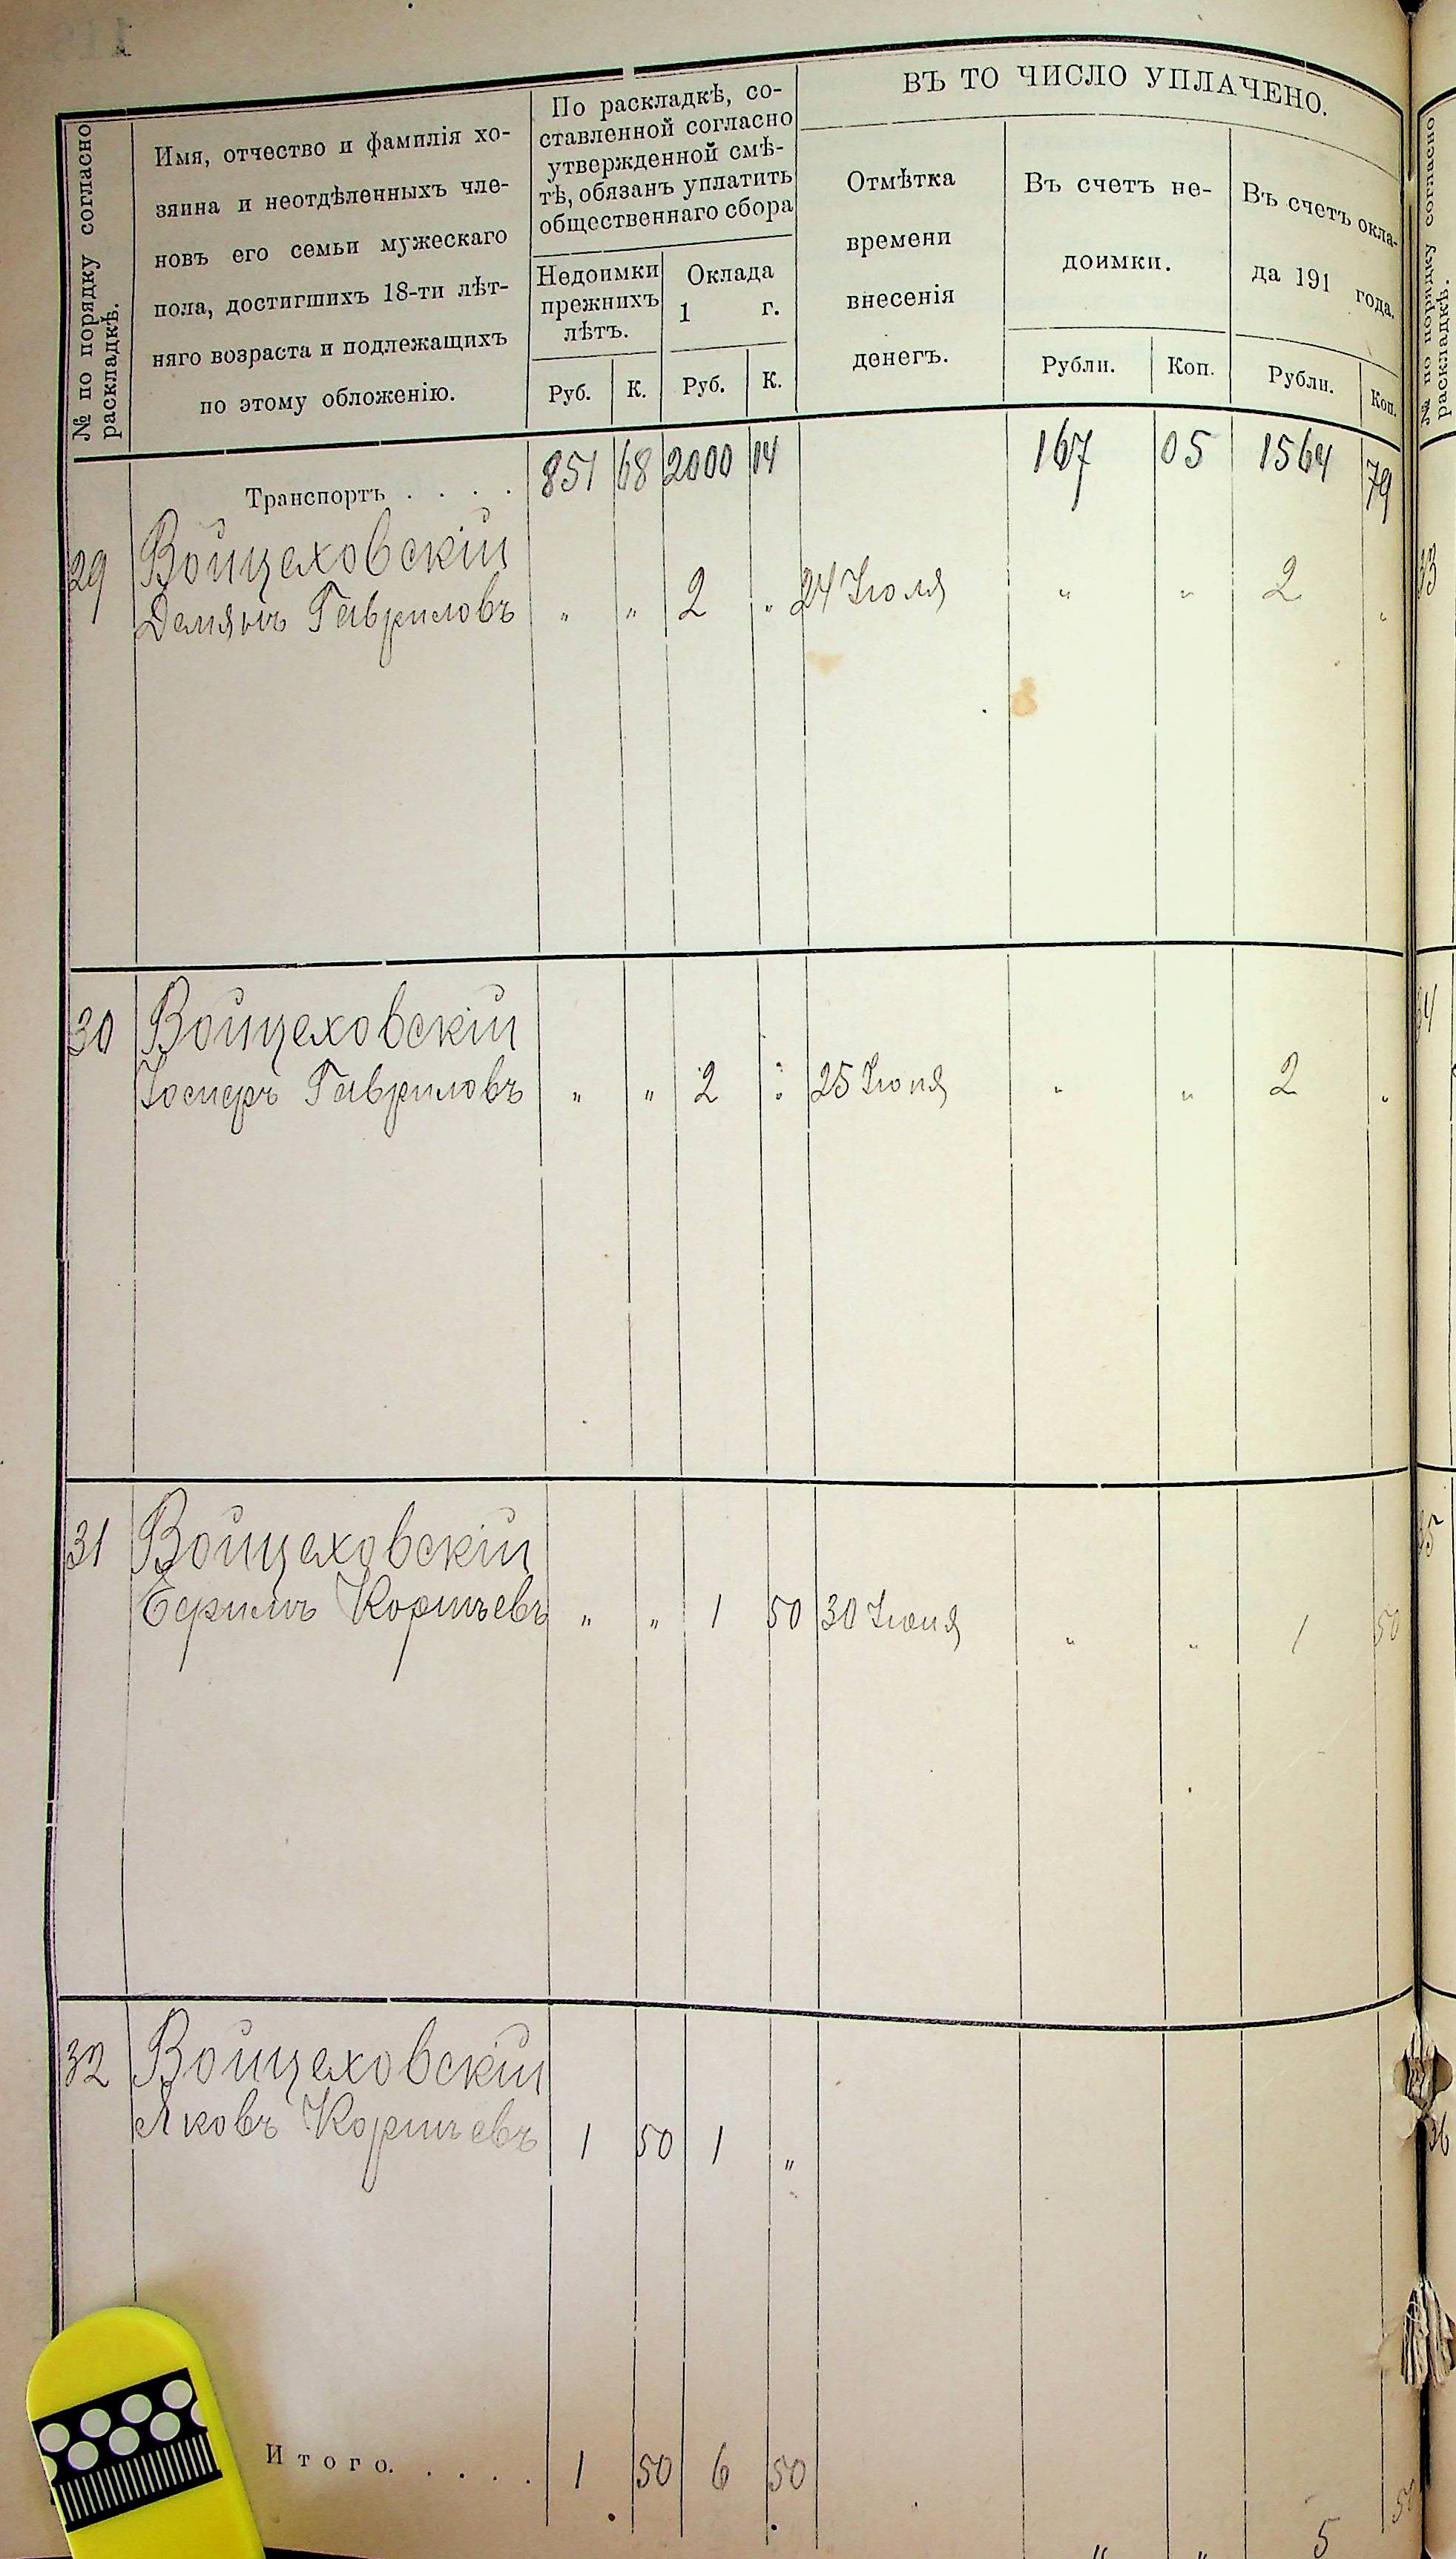 ВЪ ТО ЧИСЛО УПЛАЧЕНО.
№ по порядку согласно
раскладкѣ.
Имя, отчество и фамилія хо-
зяина и неотдѣленныхъ чле-
новъ его семьи мужескаго
пола, достигшихъ 18-ти лѣт-
няго возраста и подлежащихъ
по этому обложенію.
По раскладкѣ, со-
ставленной согласно
утвержденной смѣ-
тѣ, обязанъ уплатить
общественнаго сбора
Недоимки
прежнихъ
лѣтъ.
Оклада
1 г.
Отмѣтка
времени
внесенія
денегъ.
Въ счетъ не-
доимки.
Въ счетъ окла-
да 191 года.
Руб. К. Руб. К. Рубли. Коп. Рубли. Коп.
Транспортъ . . . . 851 68 2000 14 167 05 1564 79
29 Войцеховскій
Демянъ Гавриловъ „ „ 2 „ 24 Іюля „ „ 2 „
30 Войцеховскій
Іосифъ Гавриловъ „ „ 2 „ 25 Іюня „ „ 2 „
31 Войцеховскій
Ефимъ Корньевъ „ „ 1 50 30 Іюня „ „ 1 50
32 Войцеховскій
Яковъ Корньевъ 1 50 1 „
Итого. . . . . 1 50 6 50
„ „ 5 50